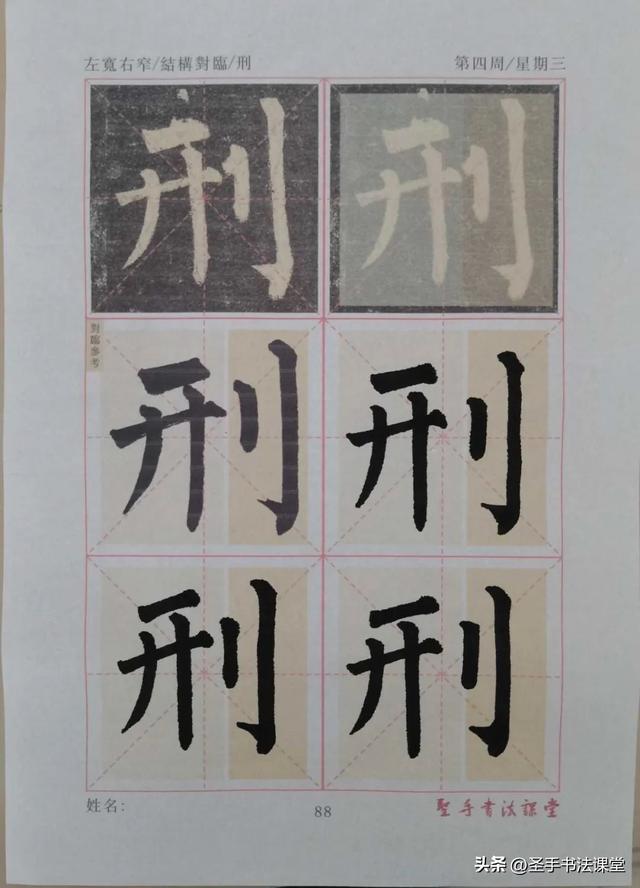 左寬右窄/結構對臨/刑 第四周/星期三
刑 刑
對臨參考
刑 刑
刑 刑
姓名: 88 聖手書法課堂
头条 @圣手书法课堂